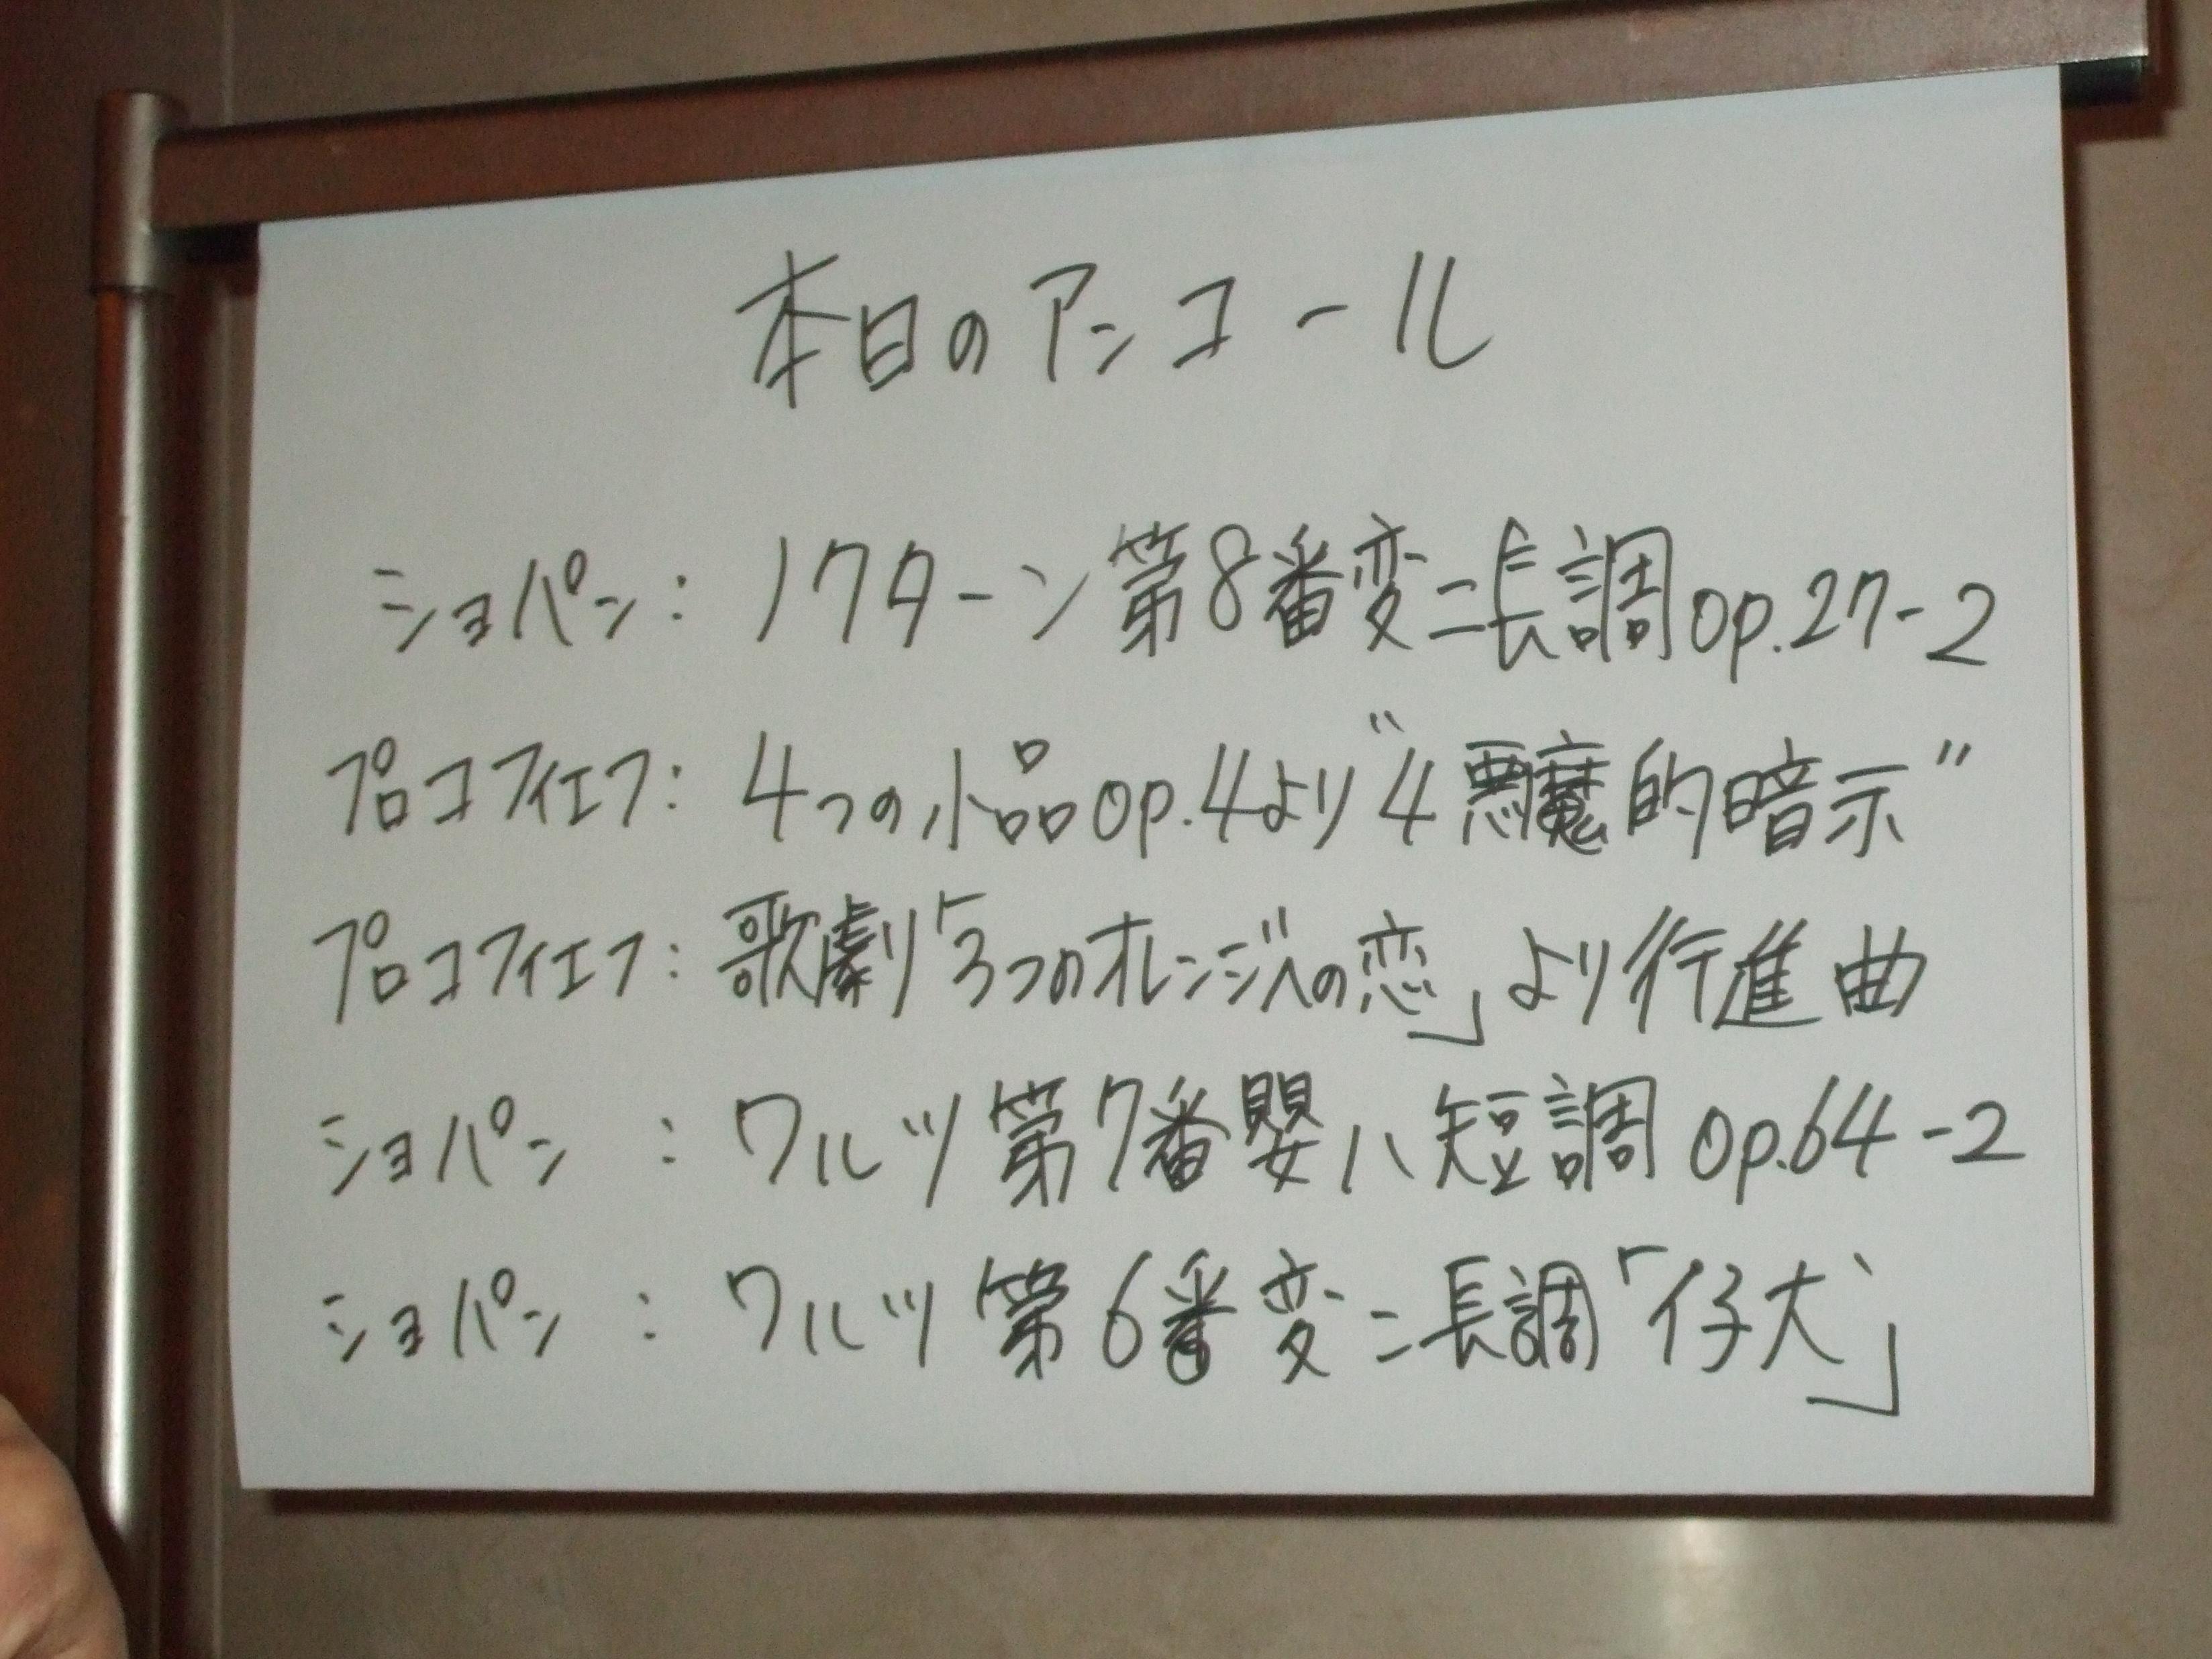 本日のアンコール
ショパン：ノクターン第8番変ニ長調op.27-2
プロコフィエフ：4つの小品op.4より"4 悪魔的暗示"
プロコフィエフ：歌劇「3つのオレンジへの恋」より行進曲
ショパン：ワルツ第7番嬰ハ短調 op.64-2
ショパン：ワルツ第6番変ニ長調「仔犬」